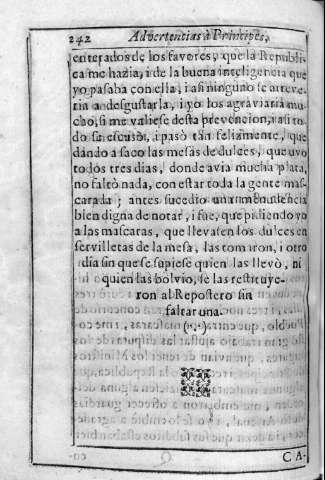 242 Advertencias à Principes,
enterados de los favores, que la Republi-
ca me hazia, i de la buena inteligencia que
yo pasaba con ella, i asi ninguno se atreve-
ria a desgustarla, i yo los agraviaria mu-
cho, si me valiese desta prevencion, i asi to-
do se escusò, i pasò tan felizmente, que
dando a saco las mesas de dulces, que uvo
todos tres dias, donde avia mucha plata,
no faltò nada, con estar toda la gente mas-
carada; antes sucedio una
bien digna de notar, i fue, que pidiendo yo
a las mascaras, que llevasen los dulces en
servilletas de la mesa, las tomaron, i otro
dia sin que se supiese quien las llevò, ni
quien las bolvio, se las restituye-
ron al Repostero sin
faltar una.
CA-